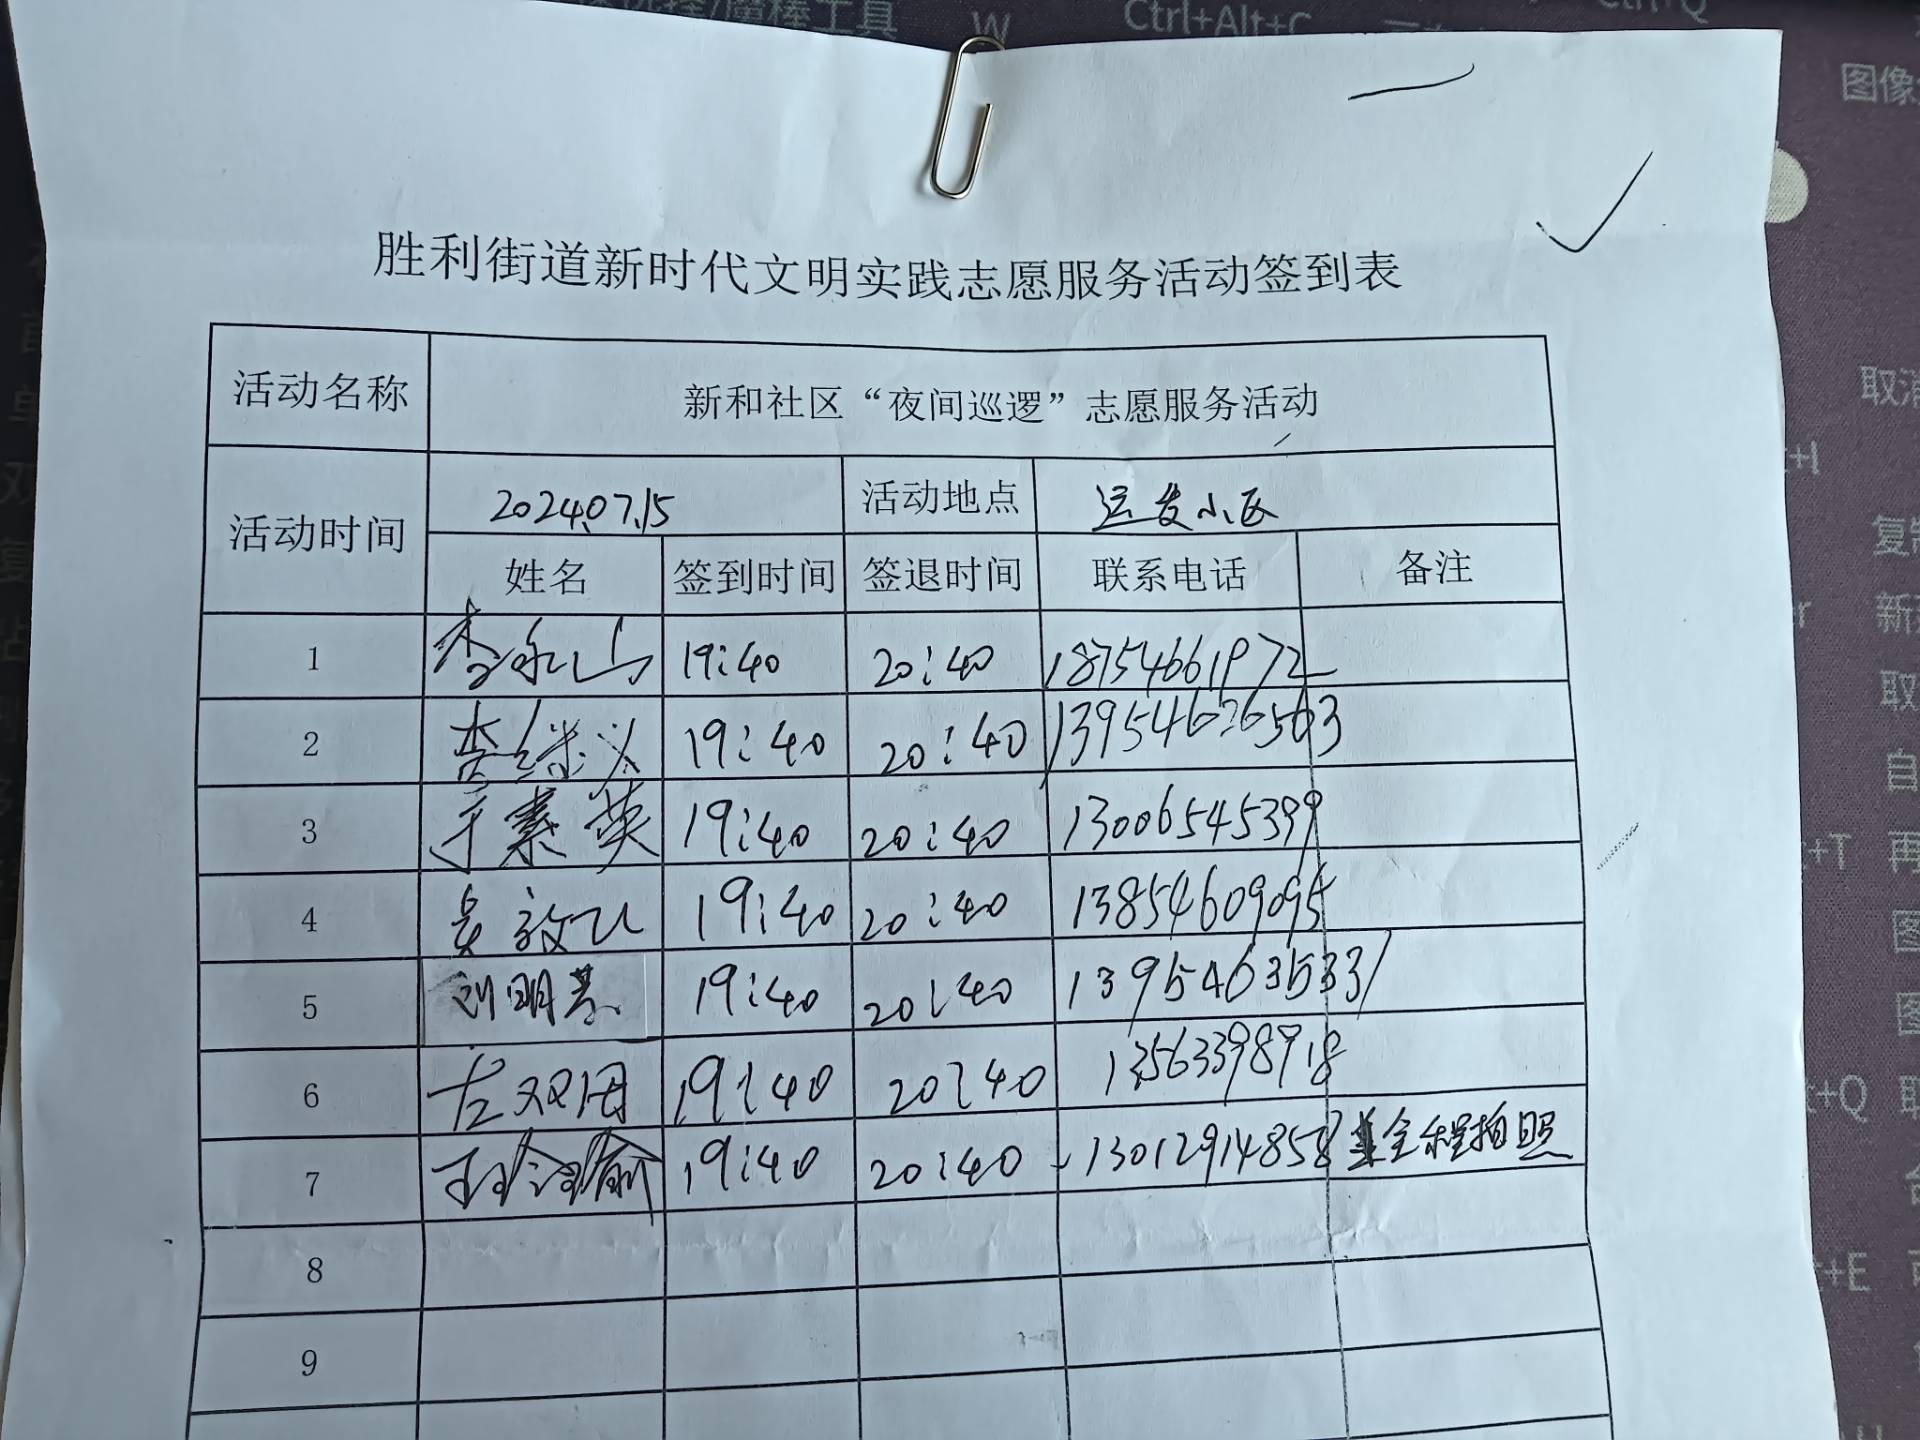 Ctrl+Alt+C
胜利街道新时代文明实践志愿服务活动签到表
活动名称 新和社区“夜间巡逻”志愿服务活动
活动时间 2024.07.15 活动地点 运发小区
姓名 签到时间 签退时间 联系电话 备注
1 李永山 19:40 20:40 18754661972
2 19:40 20:40 13954626563
3 于素英 19:40 20:40 13006545399
4 19:40 20:40 13854609095
5 刘明基 19:40 20:40 13954635331
6 左双田 19:40 20:40 13563398918
7 19:40 20:40 13012914858 全程拍照
8
9